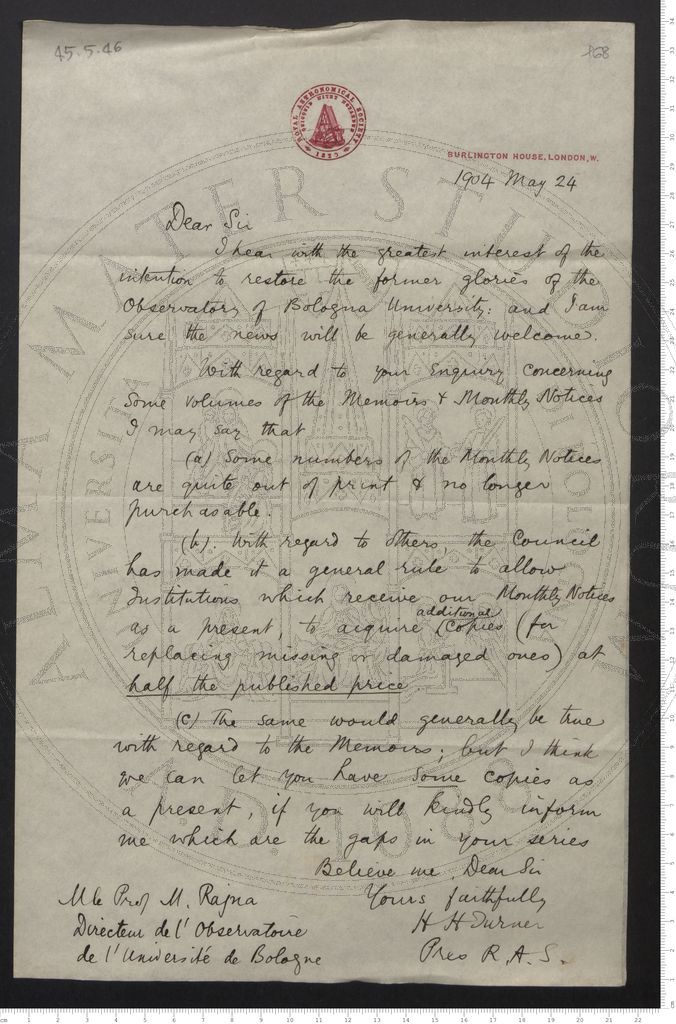 45.5.46
168
ROYAL ASTRONOMICAL SOCIETY
BURLINGTON HOUSE, LONDON, W.
1904 May 24
Dear Sir
I hear with the greatest interest of the
intention to restore the former glories of the
Observatory of Bologna University: and I am
sure the news will be generally welcome.
With regard to your Enquiry concerning
some volumes of the Memoirs & Monthly Notices
I may say that
(a) Some numbers of the Monthly Notices
are quite out of print & no longer
purchasable.
(b). With regard to others, the Council
has made it a general rule to allow
Institutions which receive our Monthly Notices
as a present, to acquire additional copies (for
replacing missing or damaged ones) at
half the published price.
(c) The same would generally be true
with regard to the Memoirs; but I think
we can let you have some copies as
a present, if you will kindly inform
me which are the gaps in your series
Believe me, Dear Sir
Yours faithfully
H H Turner
Pres R. A. S.
M le Prof M. Rajna
Directeur de l'Observatoire
de l'Université de Bologne